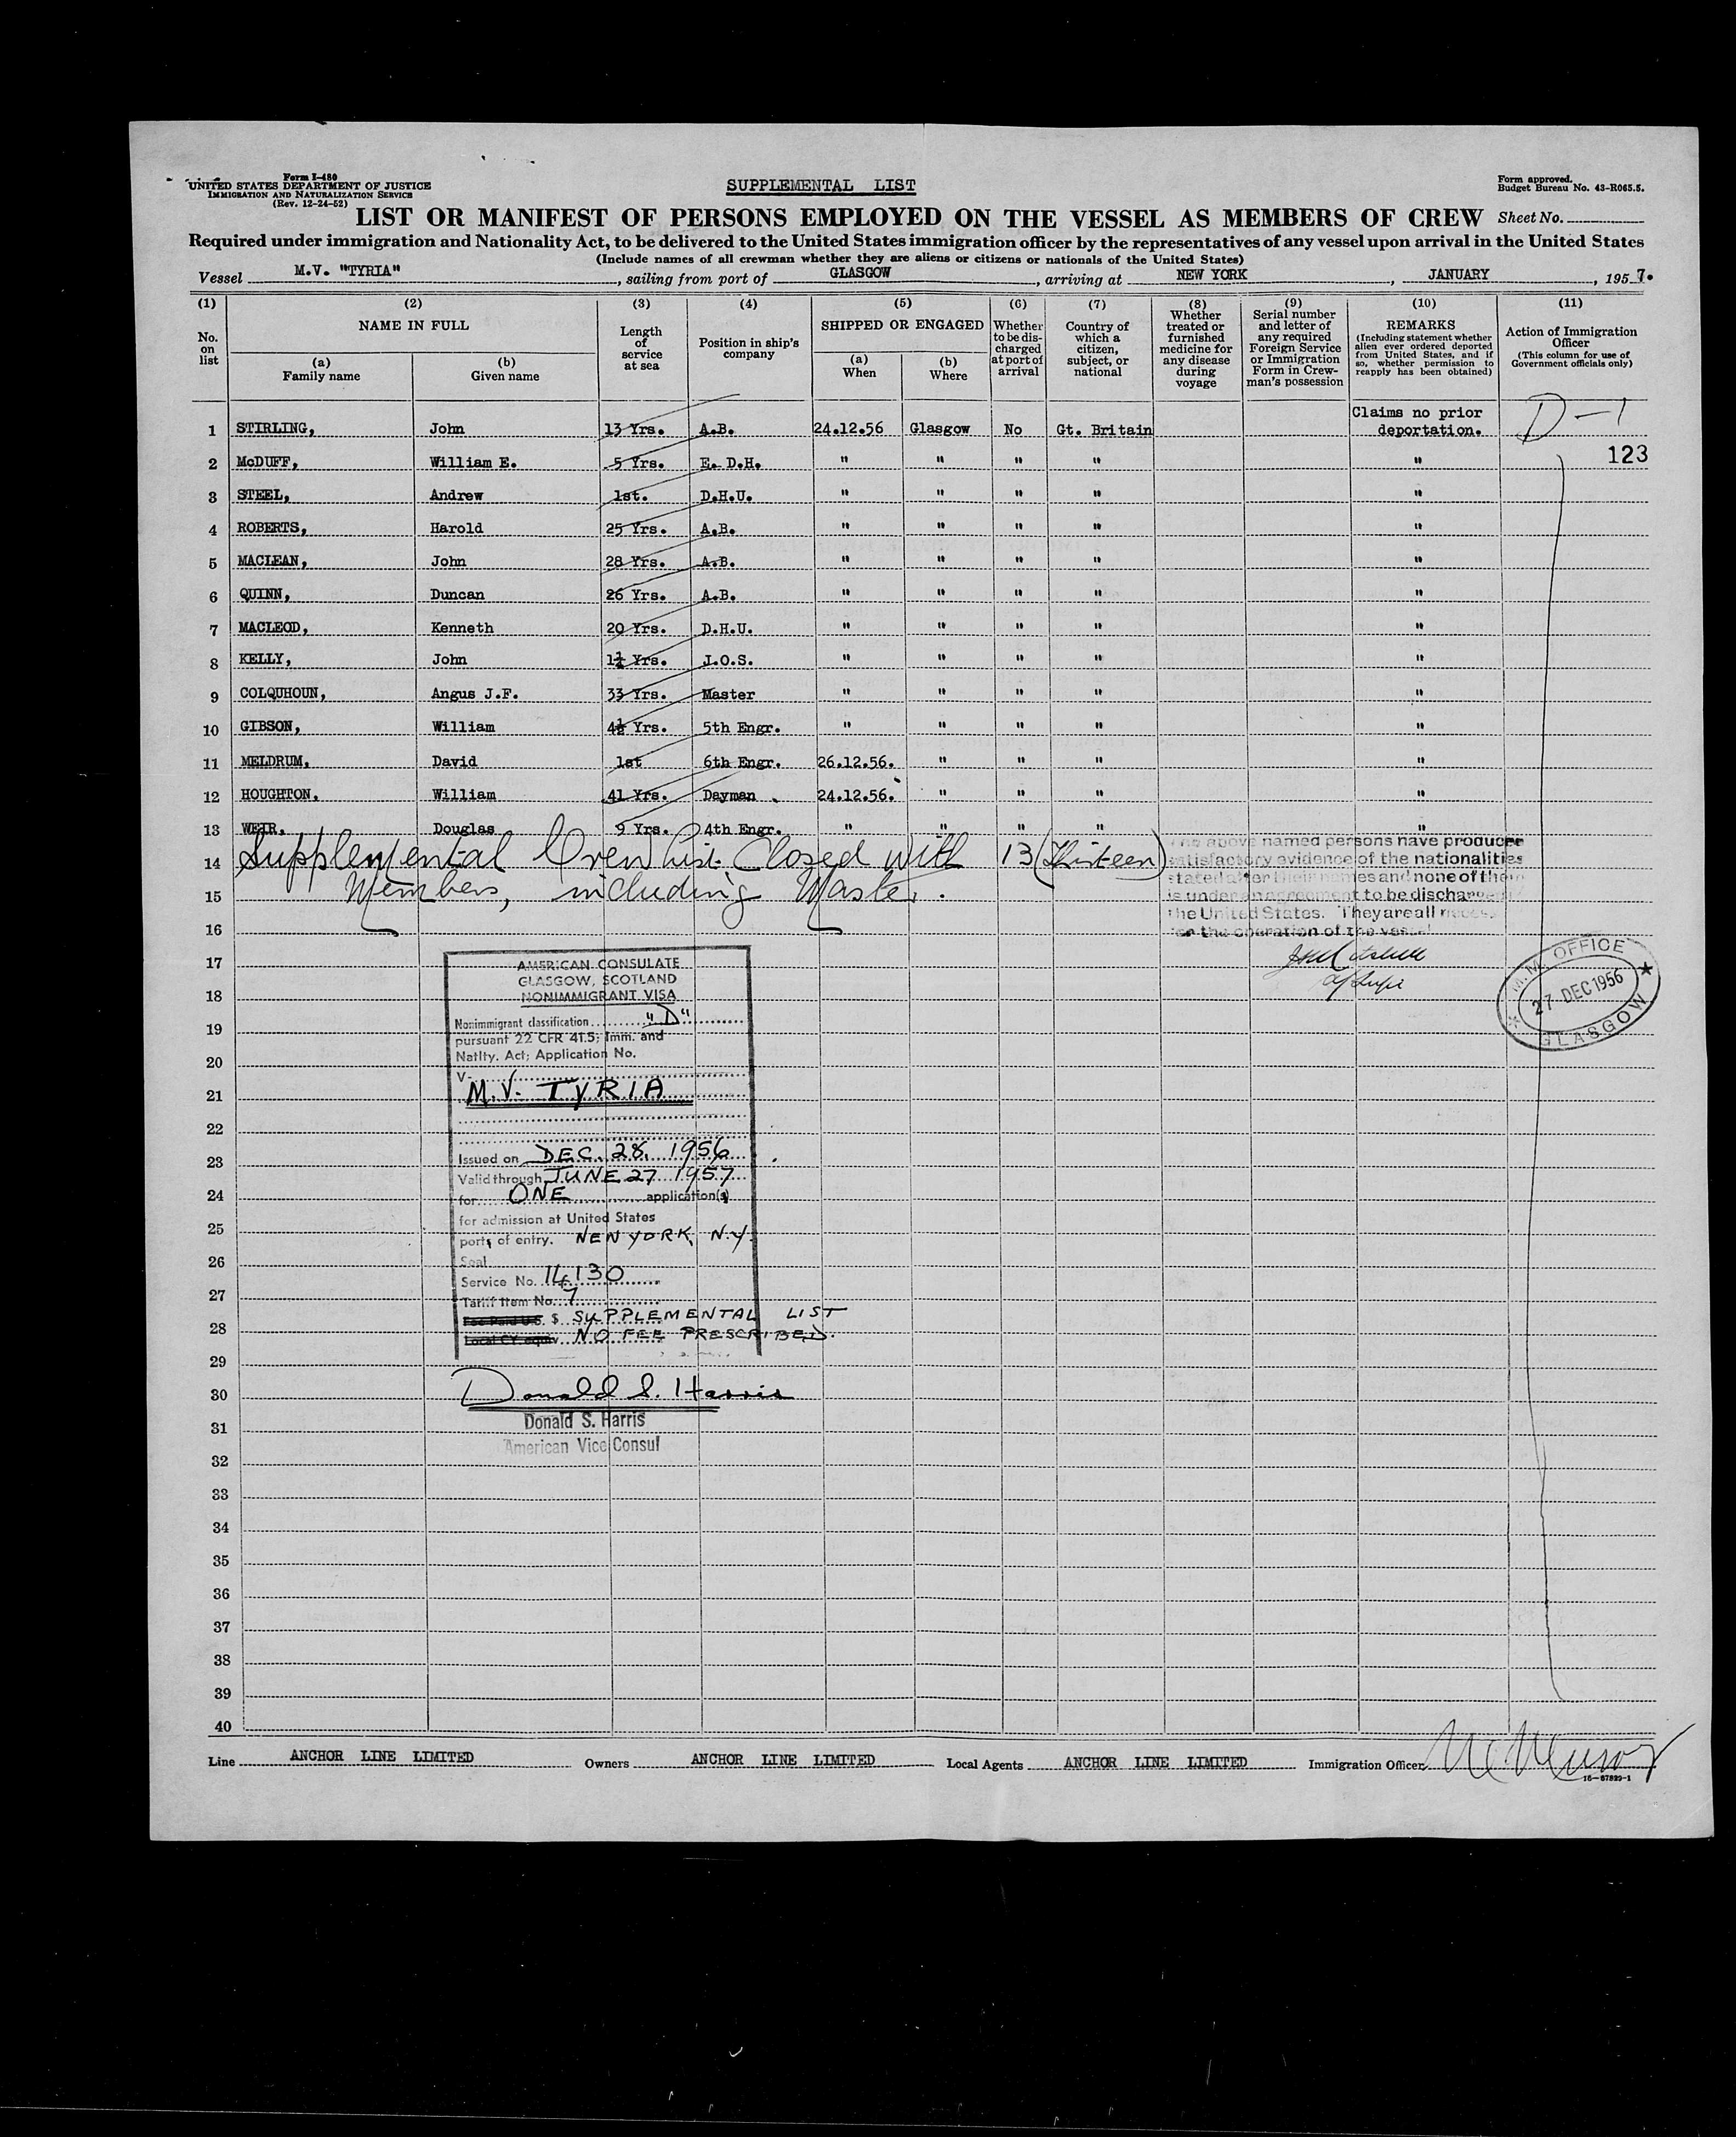 Form I-480
UNITED STATES DEPARTMENT OF JUSTICE
IMMIGRATION AND NATURALIZATION SERVICE
(Rev. 12-24-52)
SUPPLEMENTAL LIST
Form approved.
Budget Bureau No. 43-R065.5.
LIST OR MANIFEST OF PERSONS EMPLOYED ON THE VESSEL AS MEMBERS OF CREW Sheet No.
Required under immigration and Nationality Act, to be delivered to the United States immigration officer by the representatives of any vessel upon arrival in the United States
(Include names of all crewman whether they are aliens or citizens or nationals of the United States)
Vessel M.V. "TYRIA", sailing from port of GLASGOW, arriving at NEW YORK, JANUARY, 1957.
(1) No. on list
(2) NAME IN FULL
(a) Family name
(b) Given name
(3) Length of service at sea
(4) Position in ship's company
(5) SHIPPED OR ENGAGED
(a) When
(b) Where
(6) Whether to be discharged at port of arrival
(7) Country of which a citizen, subject, or national
(8) Whether treated or furnished medicine for any disease during voyage
(9) Serial number and letter of any required Foreign Service or Immigration Form in Crewman's possession
(10) REMARKS (Including statement whether alien ever ordered deported from United States, and if so, whether permission to reapply has been obtained)
(11) Action of Immigration Officer (This column for use of Government officials only)
1 STIRLING, John 13 Yrs. A.B. 24.12.56 Glasgow No Gt. Britain Claims no prior deportation. D-1
2 McDUFF, William E. 5 Yrs. E. D.H. " " " " " 123
3 STEEL, Andrew 1st. D.H.U. " " " " "
4 ROBERTS, Harold 25 Yrs. A.B. " " " " "
5 MACLEAN, John 28 Yrs. A.B. " " " " "
6 QUINN, Duncan 26 Yrs. A.B. " " " " "
7 MACLEOD, Kenneth 20 Yrs. D.H.U. " " " " "
8 KELLY, John Yrs. J.O.S. " " " " "
9 COLQUHOUN, Angus J.F. 33 Yrs. Master " " " " "
10 GIBSON, William 4½ Yrs. 5th Engr. " " " " "
11 MELDRUM, David 1st 6th Engr. 26.12.56. " " " "
12 HOUGHTON. William 41 Yrs. Dayman 24.12.56. " " " "
13 WEIR, Douglas 9 Yrs. 4th Engr. " " " " "
14 Supplemental Crew List Closed with 13 (Thirteen)
15 Members, including Master.
The above named persons have produced
satisfactory evidence of the nationalities
stated after their names and none of them
is under an agreement to be discharged
the United States. They are all
for the operation of the vessel
16
17
18
19
20
21
22
23
24
25
26
27
28
29
30
31
32
33
34
35
36
37
38
39
40
M.M. OFFICE
27 DEC 1956
GLASGOW
AMERICAN CONSULATE
GLASGOW, SCOTLAND
NONIMMIGRANT VISA
Nonimmigrant classification "D"
pursuant 22 CFR 41.5; Imm. and
Natlty. Act; Application No.
V-
M.V. TYRIA
Issued on DEC. 28, 1956
Valid through JUNE 27 1957
for ONE application(s)
for admission at United States
ports of entry. NEW YORK, N.Y.
Seal
Service No. 14130
Tariff Item No. 7
Fee Paid U.S. $ SUPPLEMENTAL LIST
Local CY. equiv. NO FEE PRESCRIBED.
Donald S. Harris
Donald S. Harris
American Vice Consul
Line ANCHOR LINE LIMITED Owners ANCHOR LINE LIMITED Local Agents ANCHOR LINE LIMITED Immigration Officer
16-67829-1